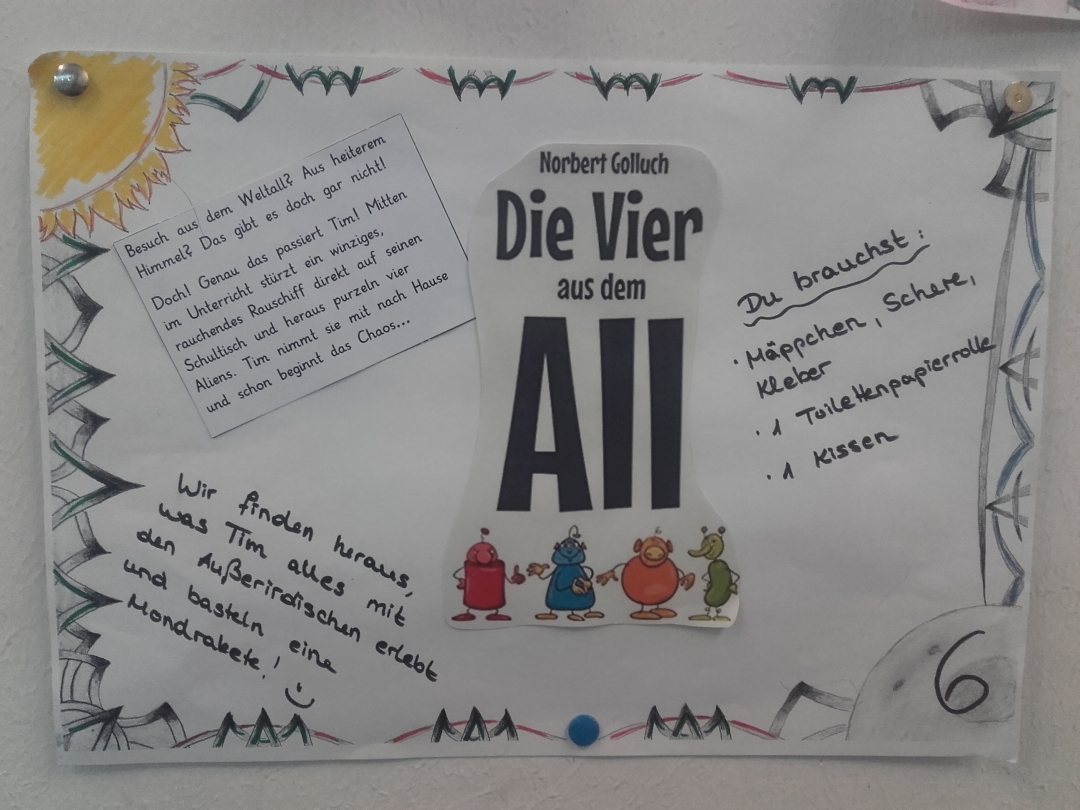 Besuch aus dem Weltall? Aus heiterem
Himmel? Das gibt es doch gar nicht!
Doch! Genau das passiert Tim! Mitten
im Unterricht stürzt ein winziges,
rauchendes Rauschiff direkt auf seinen
Schultisch und heraus purzeln vier
Aliens. Tim nimmt sie mit nach Hause
und schon beginnt das Chaos...
Norbert Golluch
Die Vier
aus dem
All
Du brauchst:
· Mäppchen, Schere,
Kleber
· 1 Toilettenpapierrolle
· 1 Kissen
Wir finden heraus,
was Tim alles mit
den Außerirdischen erlebt
und basteln eine
Mondrakete! :)
6